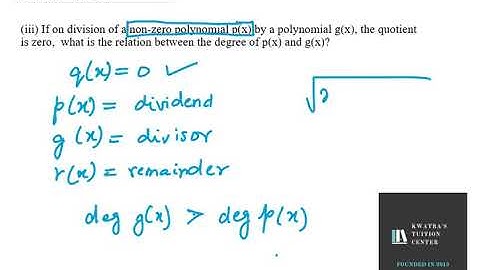 (iii) If on division of a non-zero polynomial p(x) by a polynomial g(x), the quotient
is zero, what is the relation between the degree of p(x) and g(x)?
q(x) = 0 ✓
p(x) = dividend
g(x) = divisor
r(x) = remainder
deg g(x) > deg p(x)
KWATRA'S
TUITION
CENTER
FOUNDED IN 2013